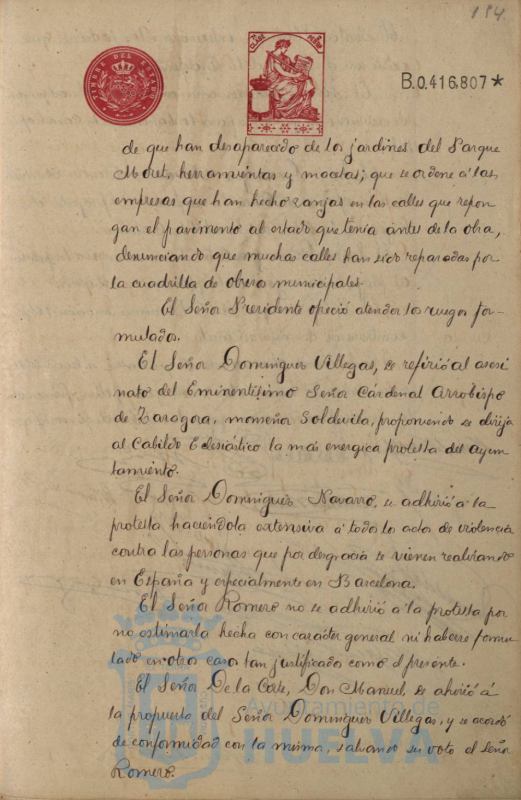 184.
TIMBRE DEL ESTADO
CLASE
B.0.416.807*
de que han desaparecido de los jardines del Parque
Moret, herramientas y macetas; que se ordene á las
empresas que han hecho zanjas en las calles que repon-
gan el pavimento al estado que tenia antes de la obra,
denunciando que muchas calles han sido reparadas por
la cuadrilla de obreros municipales.
El Señor Presidente ofreció atender los ruegos for-
mulados.
El Señor Dominguez Villegas, se refirió al asesi
nato del Eminentisimo Señor Cardenal Arzobispo
de Zaragoza, monseñor Soldevila, proponiendo se dirija
al Cabildo Eclesiástico la mas energica protesta del ayun
tamiento.
El Señor Dominguez Navarro, se adhirió á la
protesta haciendola extensiva á todo los actos de violencia
contra las personas que por desgracia se vienen realizando
en España y especialmente en Barcelona.
El Señor Romero no se adhirió á la protesta por
no estimarla hecha con carácter general ni haberse formu
lado en otro caso tan justificado como el presente.
El Señor De la Corte, Don Manuel, se ahirió á
la propuesta del Señor Dominguez Villegas, y se acordó
de conformidad con la misma, salvando su voto el Señor
Romero.
Ayuntamiento de
HUELVA